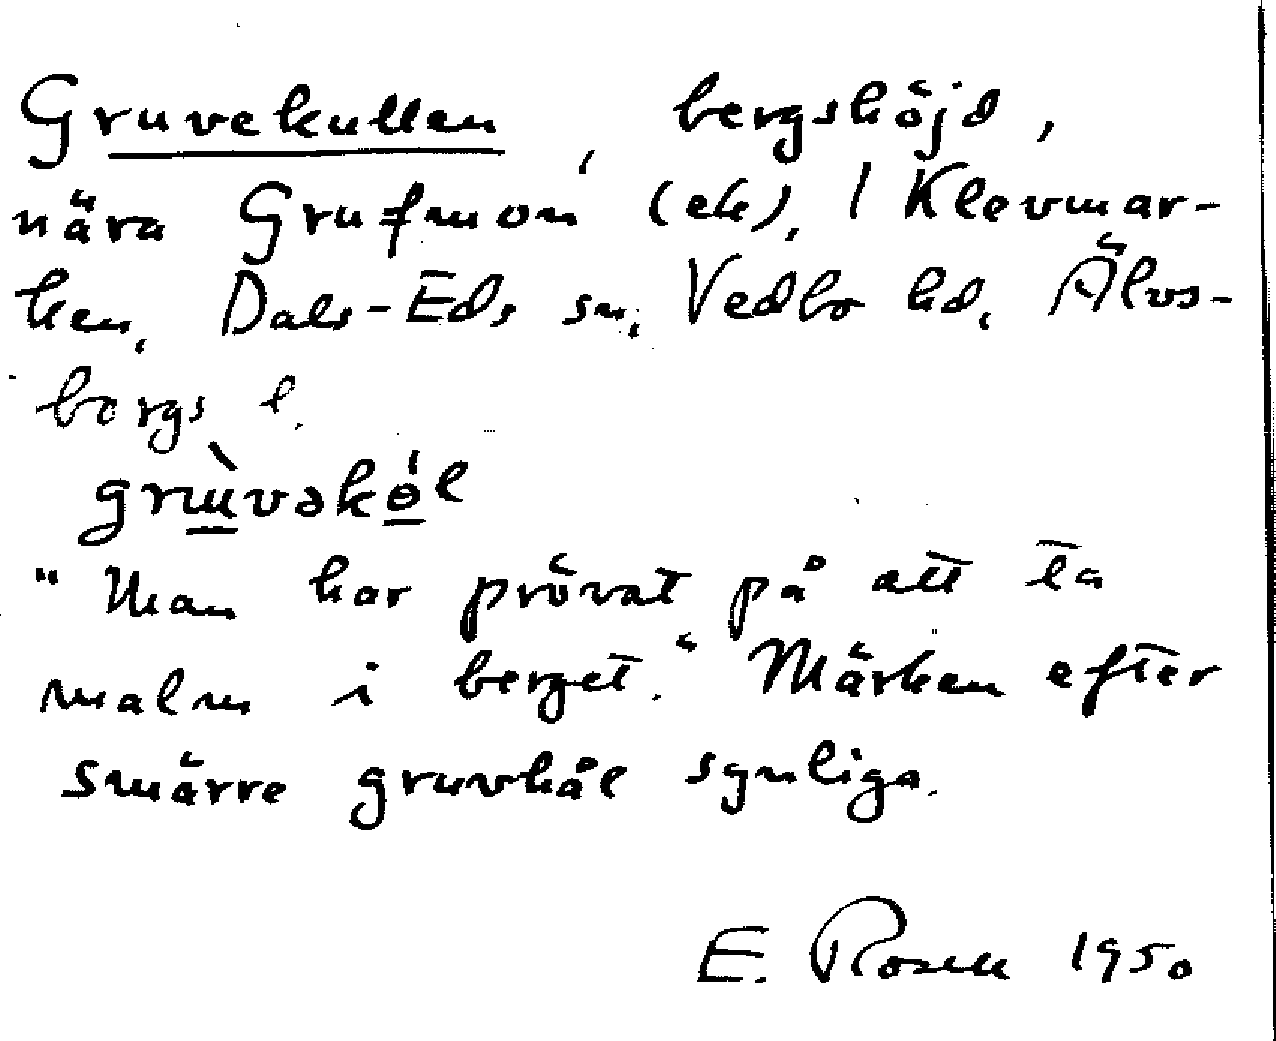 Gruvekullen, bergshöjd,
nära Grufmon (ek), 1 Klevmar-
ken, Dals-Eds sn, Vedbo hd, Älvs-
borgs l.
grùvəkö́l
"Man har prövat på att ta
malm i berget." Märken efter
smärre gruvhål synliga.
E. Rosen 1950